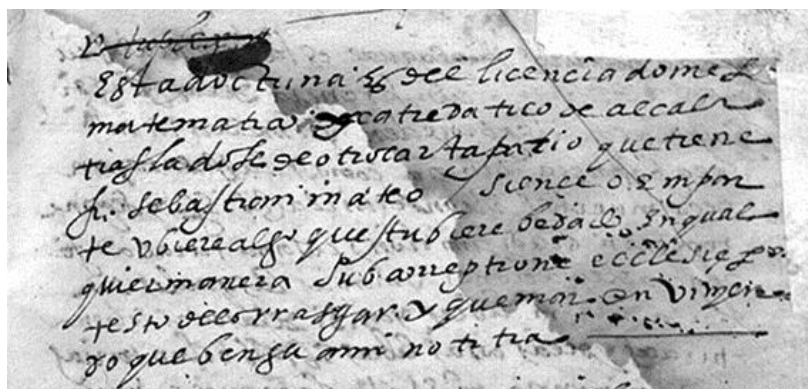 Esta doctrina es del licenciado mes
matematico catredatico de alcala
trasladose de otro cartapatio que tiene
fr. sebastian mateo si en el o en par
te ubiere algo que stubiere bedado en qual
quier manera sub correptione ecclesie
testo de el rrasgar y quemar en vinien
do que benga a mi notitia